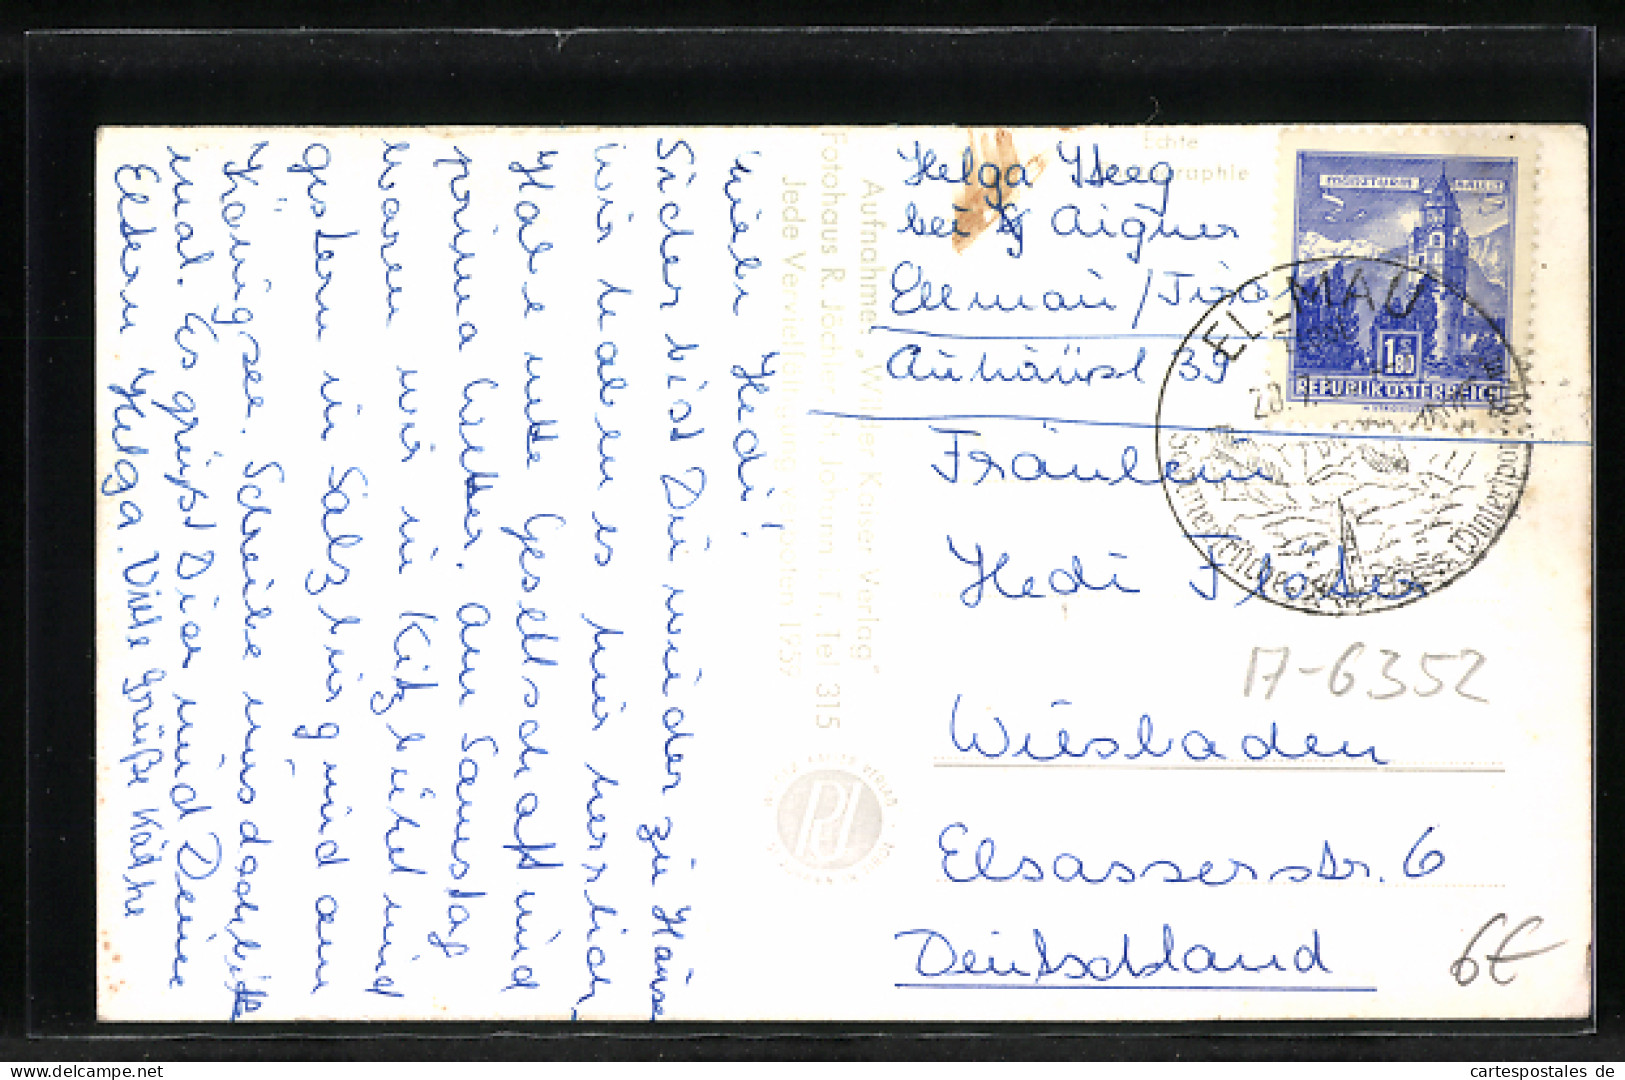 Liebe Hedi!
Sicher bist Du wieder zu Hause
wir haben es hier herrlich.
Habe nette Gesellschaft und
prima Wetter. Am Samstag
waren wir in Kitzbühel und
gestern in Salzburg und am
Königsee. Schreibe uns doch bitte
mal. Es grüßt Dich und Deine
Eltern Helga. Viele Grüße Käthe
Aufnahme: „Wilder Kaiser Verlag"
Fotohaus R. Jöchler, St. Johann i. T., Tel. 315
Jede Vervielfältigung verboten
Echte
Helga Heeg
bei Aigner
Ellmau/Tirol
Auhäusl 39
MÜNZTURM HALL I.T.
S 1.80
REPUBLIK ÖSTERREICH
ELLMAU
Wintersport
Fräulein
Hedi
Wiesbaden
Elsasserstr. 6
Deutschland
A-6352
6€
www.cartespostales.de